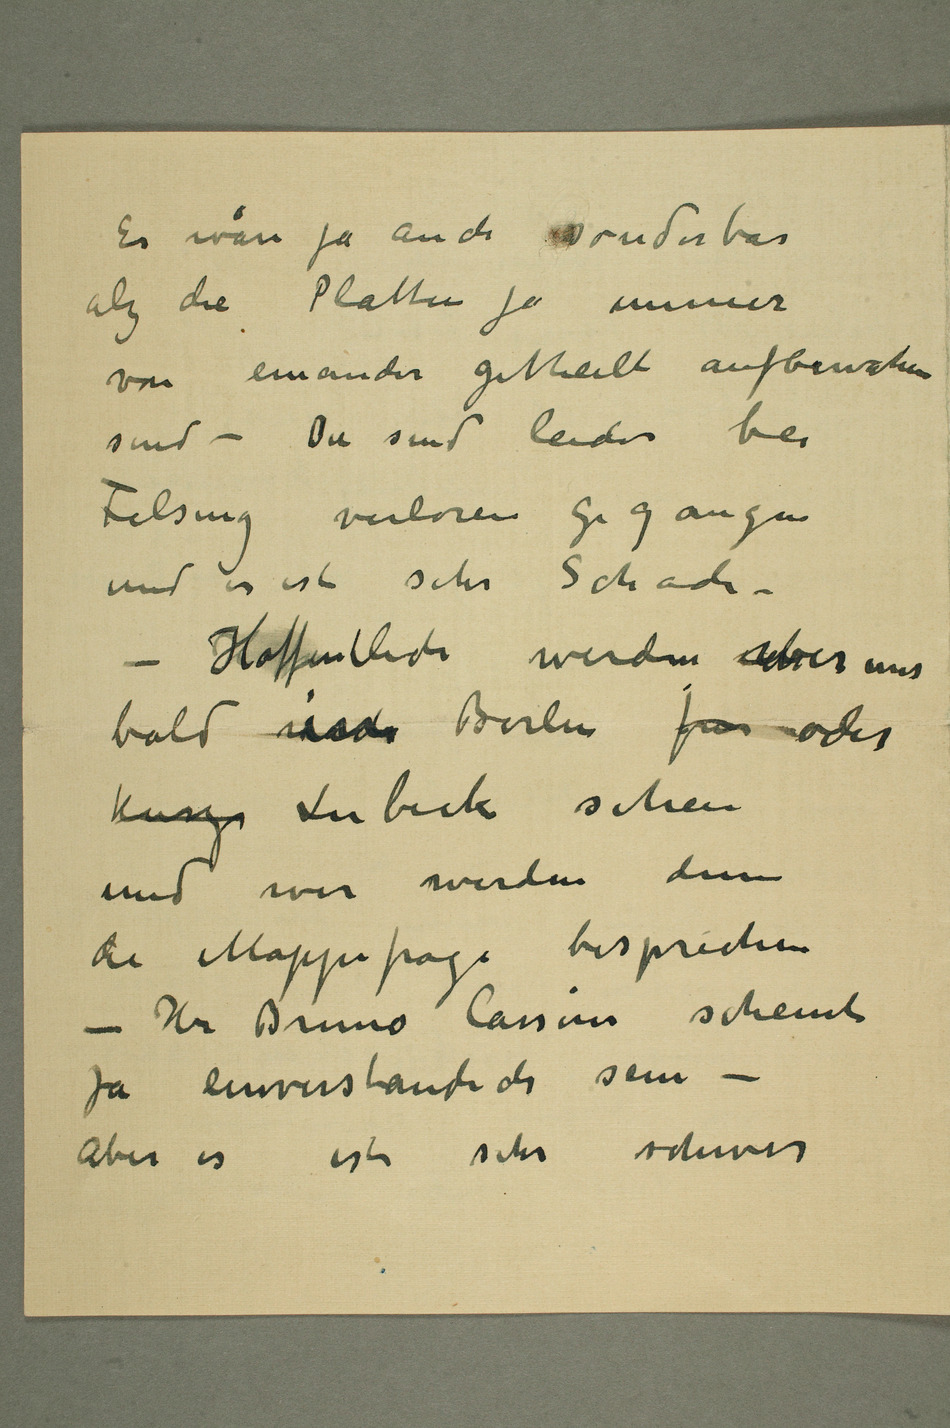 Es wäre ja auch sonderbar
als die Platten ja immer
von einander getheilt aufbewahrt
sind – Die sind leider bei
Felsing verloren gegangen
und es ist sehr Schade –
– Hoffentlich werden wir uns
bald in Berlin oder
Lubeck sehen
und wir werden dann
die Mappefrage besprechen
– Hr Bruno Cassirer scheint
ja einverstanded sein –
Aber es ist sehr schwer